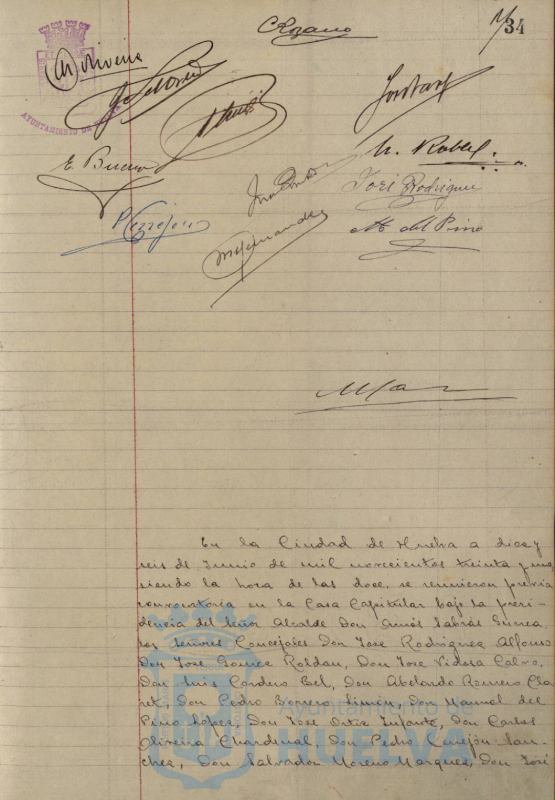 C Lozano
34
AYUNTAMIENTO DE
E. Bueno
José Rodriguez
P Cerrejon
M. Fernandez
M. del Pino
En la Ciudad de Huelva a diez y
seis de Junio de mil novecientos treinta y uno
siendo la hora de las doce, se reunieron previa
convocatoria en la Casa Capitular bajo la presi-
dencia del señor Alcalde Don Amós Sabrás Gurrea,
los señores Concejales Don José Rodriguez Alfonso
Don José Ponce Roldan, Don José Vidosa Calvo,
Don Luis Cordero Bel, Don Abelardo Romero Cla
ret, Don Pedro Borrero Limón, Don Manuel del
Pino Lopez, Don José Ortiz Infante, Don Carlos
Oliveira Chardenal, Don Pedro Cerrejón San-
chez, Don Salvador Moreno Marquez, Don José
Ayuntamiento de
HUELVA